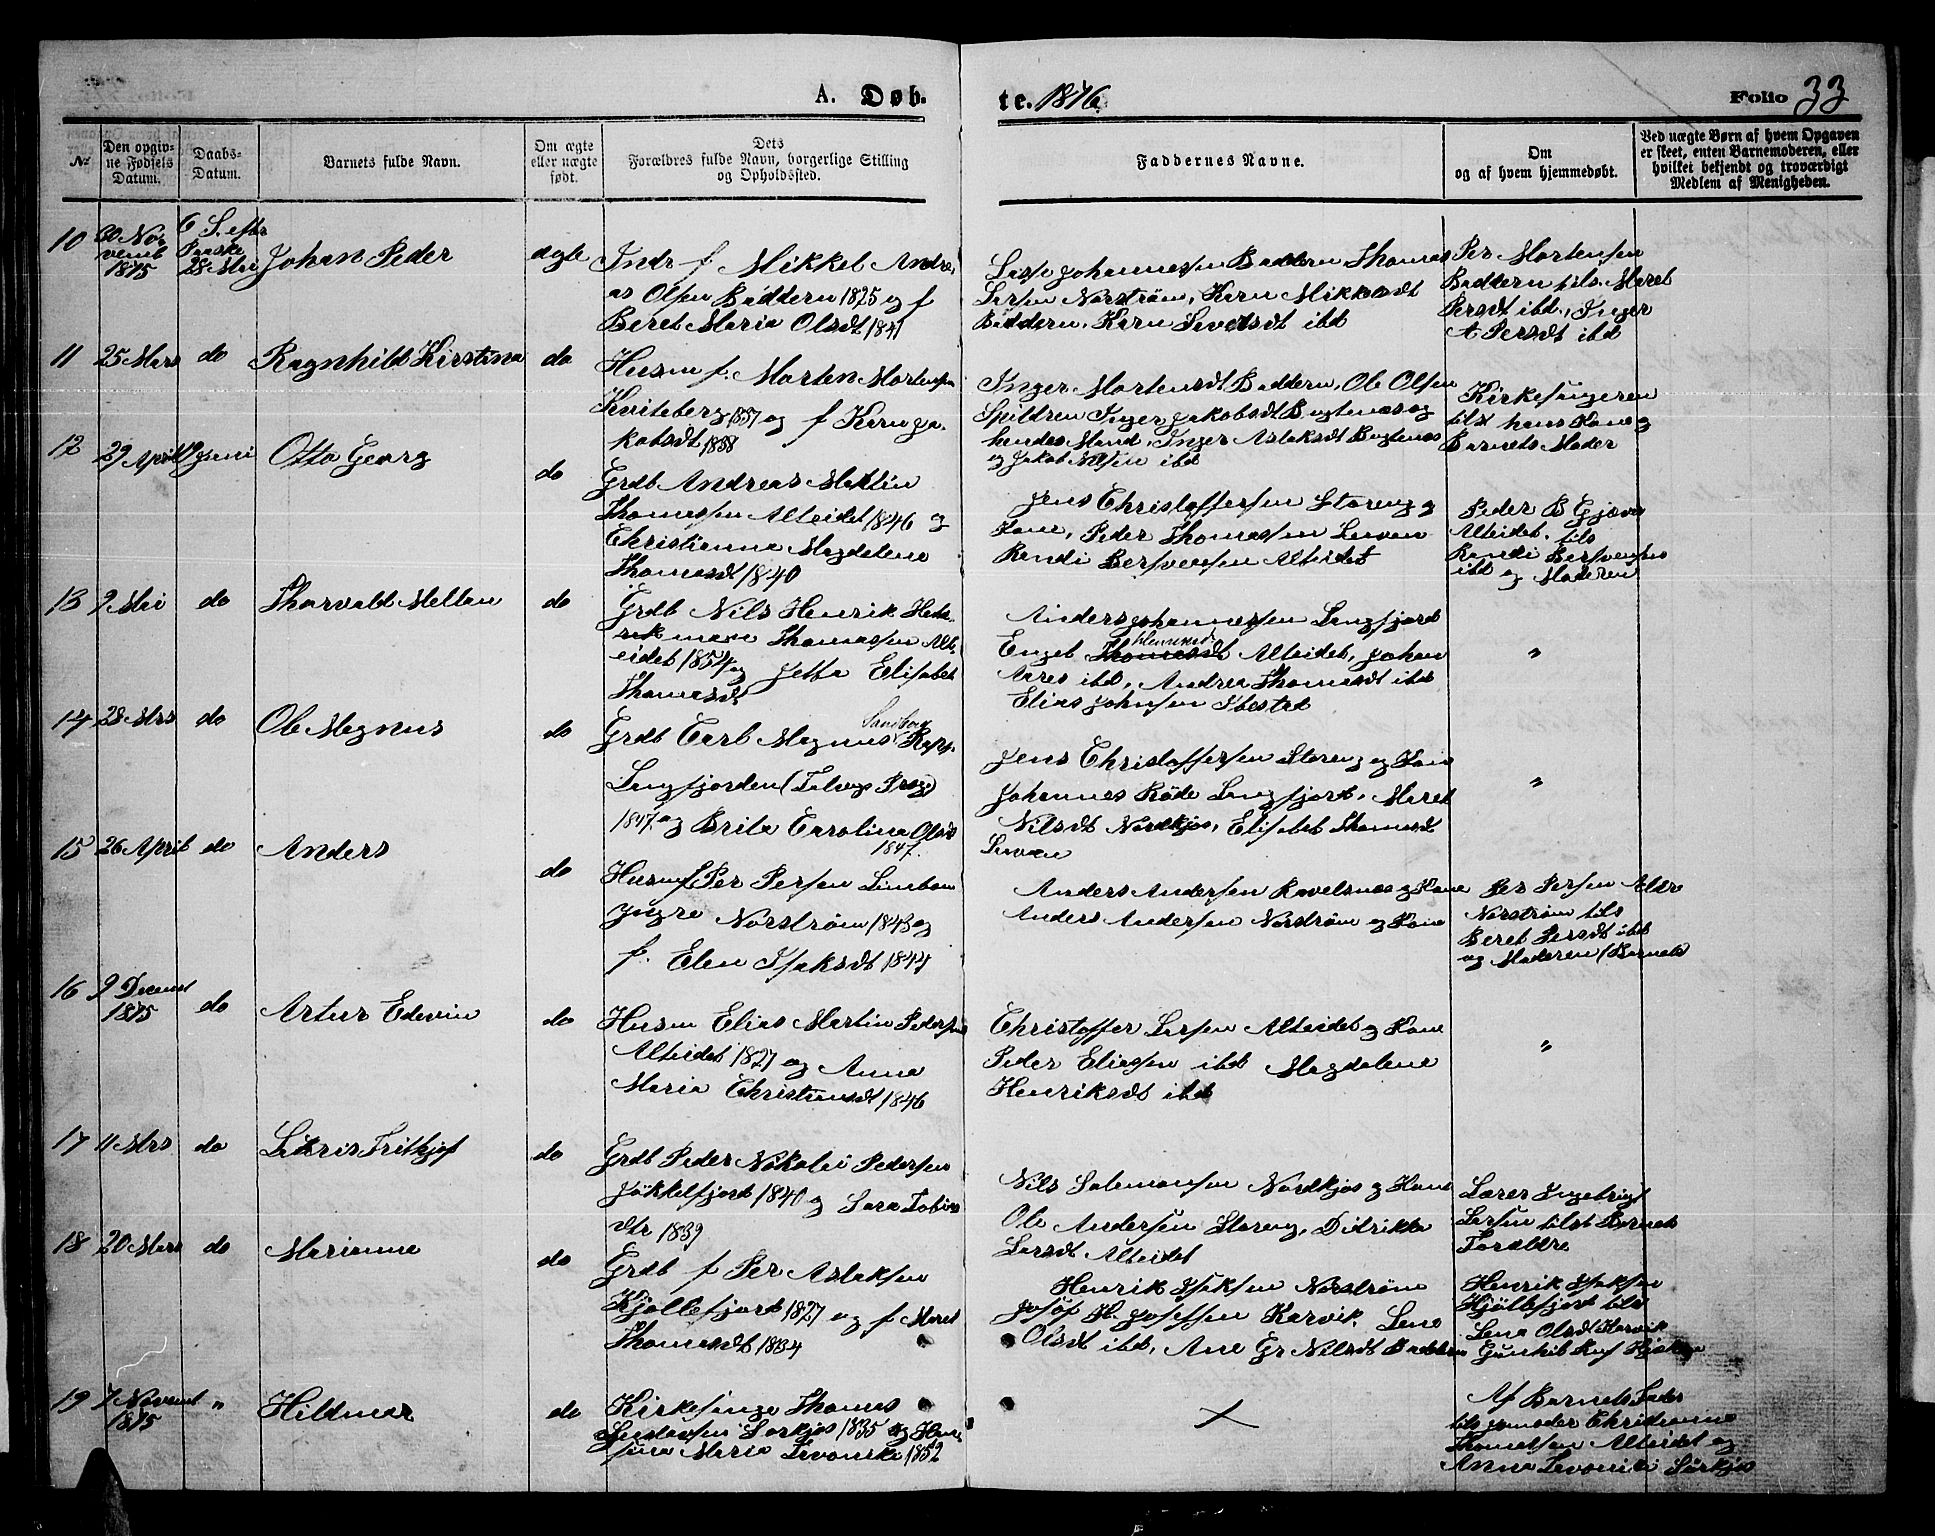 A. Døb.
te. 1876.
Folio 33
№
Den opgiv-
ne Fødsels
Datum.
Daabs-
Datum.
Barnets fulde Navn.
Om ægte
eller uægte
født.
Dets
Forældres fulde Navn, borgerlige Stilling
og Opholdssted.
Faddernes Navne.
Om
og af hvem hjemmedøbt.
Ved uægte Børn af hvem Opgaven
er skeet, enten Barnemoderen, eller
hvilket bekjendt og troværdigt
Medlem af Menigheden.
10
30 No-
vemb
1875
6 S. efter
Paaske
28 Mai
Johan Peder
ægte
Indr f Mikkel Andre-
as Olsen Baddern 1825 og f
Beret Maria Olsdt 1841
Lasse Johannessen Baddern Thomas
Larsen Norstrøm, Karn Mikkelsdt
Baddern, Karn Sivertsdt ibd
Per Mortensen
Baddern tils. Maret
Persdt ibd, Inger
A Persdt ibd
11
25 Mars
do
Ragnhild Kirstina
do
Husm f. Morten Mortensen
Kviteberg 1837 og f Karn Ja-
kobsdt 1838
Inger Mortensdt Baddern, Ole Olsen
Spildren Inger Jakobsdt Bugtenes og
hendes Mand, Inger Aslaksdt Bugtenes
og Jakob Nilsen ibd
Kirkesangeren
tilst hans Kone og
Barnets Moder
12
29 April
9 Juni
Otto Georg
do
Grdb Andreas Martin
Thomassen Alteidet 1846 og
Christianna Magdelena
Thomasdt 1840
Jens Christoffersen Storeng og
Kone, Peder Thomassen
Randi Bersvensen Alteidet
Peder B Gjæver
Alteidet, tils
Randi Bersvensen
ibd og Moderen
13
9 Mai
do
Thorvald Mellon
do
Grdb Nils Henrik
Thomassen Alt-
eidet 1854 og Jetta Elisabet
Thomasdt
Anders Johannessen Langfjord
Engel Thomasdt Alteidet, Johan
Aares ibd, Andrea Thomasdt ibd
Elias Johnsen Ibestad
"
14
28 Mrs
do
Ole Magnus
do
Sandberg
Grdb Carl Magnus
Langfjorden (Talvigs Præg)
1847 og Brita Carolina Olsdt
1847.
Jens Christoffersen Storeng og Kone
Johannes Røde Langfjord, Maret
Nilsdt Nordkjos, Elisabet Thomasdt
"
15
26 April
do
Anders
do
Husm f Per Persen
Yngre Norstrøm 1843 og
f. Elen Isaksdt 1844
Anders Andersen Ravelsnes og Kone
Anders Andersen Norstrøm og Kone
Per Persen Aldre
Norstrøm tils
Beret Persdt ibd
og Moderen (Barnets
16
9 Decemb
1875
do
Artur Edevin
do
Husm Elias Martin Pedersen
Alteidet 1827 og Anne
Maria Christiansdt 1846
Christoffer Larsen Alteidet og Kone
Peder Eliassen ibd Magdalene
Henriksdt ibd
"
17
11 Mrs
do
Lauris Fritkjof
do
Grdb Peder Nikolai Pedersen
Jøkkelfjord 1840 og Sara Tobias
dtr 1839
Nils Salamonsen Nordkjos og Kone
Ole Andersen Storeng, Didrikka
Larsdt Alteidet
Lærer Ingebrigt
Larsen tilst Barnets
Forældre
18
20 Mars
do
Marianne
do
Grdb f Per Aslaksen
Kjøllefjord 1827 og f Maret
Thomasdt 1834
Henrik Isaksen Norstrøm
Josøf H. Josefsen Karvik, Lena
Olsdt ibd, Ane Gr Nilsdt Baddern
Henrik Isaksen
Kjøllefjord tils
Lena Olsdt Karvik
19
7 Novemb
1875
"
Hildmar
do
Kirkesange Thomas
Gustavsen Sørkjos 1835 og Han-
sina Maria Levoniка 1852
×
Af Barnets Fader
tils Jomoder Christianna
Thomassen Alteidet og
Anna Levoniki Sørkjos